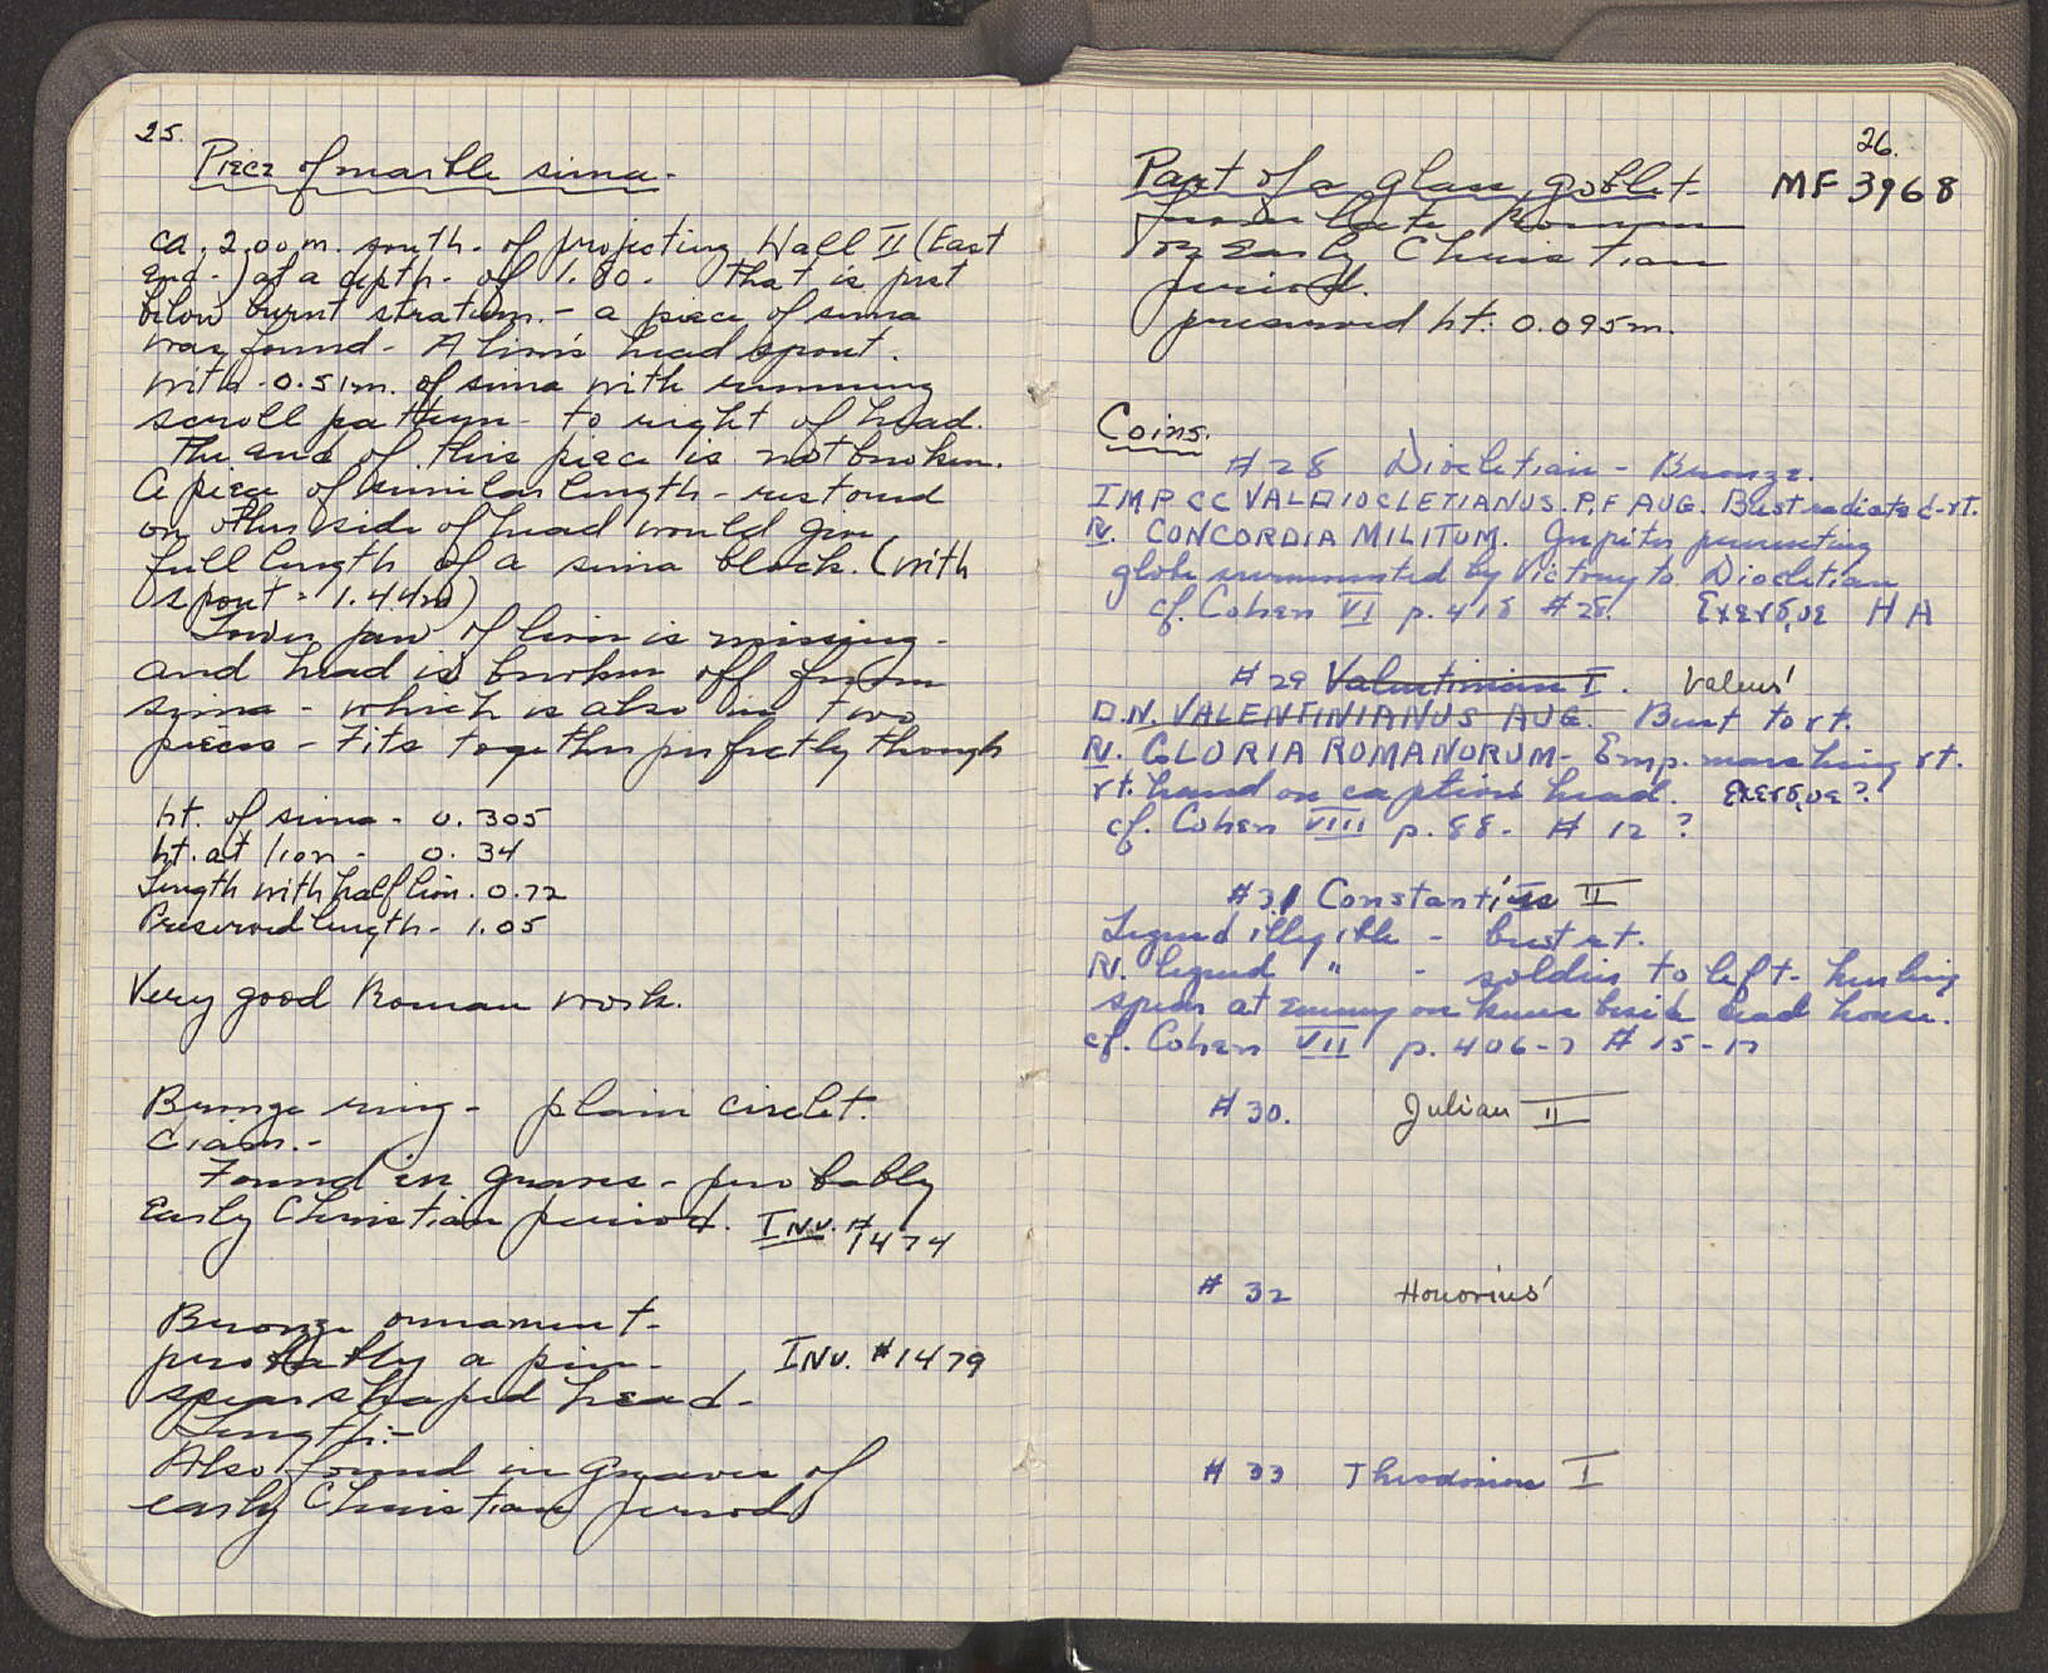 25.
Piece of marble sima -
ca. 2.00 m. south - of projecting Wall II (East
end -) at a depth - of 1.80 - That is just
below burnt stratum. - a piece of sima
was found - A lion's head spout.
with - 0.51 m. of sima with running
scroll pattern - to right of head.
The end of this piece is not broken.
A piece of similar length - restored
on other side of head would give
full length of a sima block. (with
spout = 1.44 m)
Lower jaw of lion is missing -
and head is broken off from
sima - which is also in two
pieces - Fits together perfectly though
ht. of sima - 0.305
ht. at lion - 0.34
Length with half lion. 0.72
Preserved length - 1.05
Very good Roman work.
Bronze ring - plain circlet.
diam. -
Found in graves - probably
Early Christian period. INV. # 1474
Bronze ornament -
probably a pin - INV. #1479
spear shaped head -
Length: -
Also found in graves of
early Christian period
26.
Part of a glass goblet - MF 3968
from Late Roman
or Early Christian
period.
preserved ht: 0.095 m.
Coins.
#28 Diocletian - Bronze.
IMP CC VAL DIOCLETIANUS. P.F AUG. Bust radiate d-rt.
RV. CONCORDIA MILITUM. Jupiter presenting
globe surmounted by Victory to Diocletian
cf. Cohen VI p. 418 #28. Exergue H A
#29 Valentinian I. Valens'
D.N. VALENTINIANUS AUG. Bust to rt.
RV. GLORIA ROMANORUM - Emp. marching rt.
rt. hand on captive's head. Exergue?
cf. Cohen VIII p. 88 - # 12 ?
#31 Constantius II
Legend illegible - bust rt.
RV. legend " - soldier to left - hurling
spear at enemy on knees beside dead horse.
cf. Cohen VII p. 406-7 # 15-17
#30. Julian II
# 32 Honorius'
# 33 Theodosius I